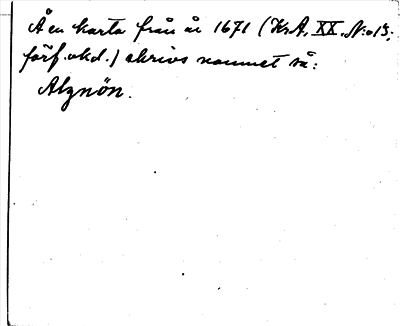 Å en karta från år 1671 (Kr.A. XX. N:o 13;
förf. okd.) skrives namnet så:
Alznön.